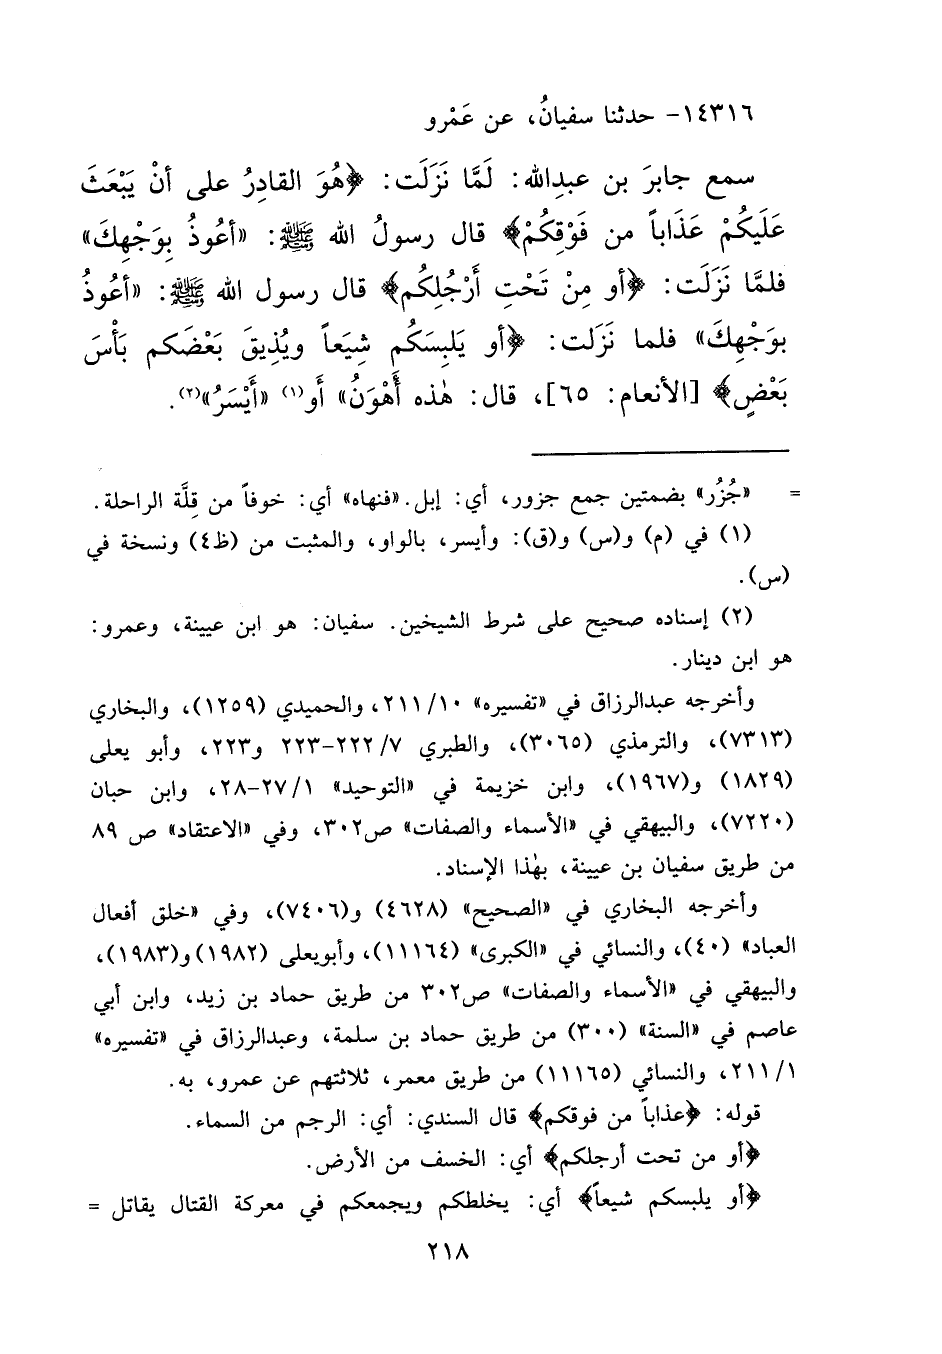 ١٤٣١٦- حدثنا سفيانُ، عن عَمْرو
سمع جابرَ بن عبدِالله: لَمَّا نَزَلَت: ﴿هُوَ القادِرُ على أنْ يَبْعَثَ
عَلَيكُمْ عَذَاباً من فَوْقِكُمْ﴾ قال رسولُ الله ﷺ: «أعُوذُ بِوَجْهِكَ»
فلمَّا نَزَلَت: ﴿أو مِنْ تَحْتِ أَرْجُلِكُم﴾ قال رسول الله ﷺ: «أعُوذُ
بوَجْهِكَ» فلما نَزَلت: ﴿أو يَلبِسَكُم شِيَعاً ويُذِيقَ بَعْضَكم بَأْسَ
بَعْضٍ﴾ [الأنعام: ٦٥]، قال: هٰذه أَهْوَنُ» أَو(١) «أَيْسَرُ»(٢).
= «جُزُر» بضمتين جمع جزور، أي: إبل. «فنهاه» أي: خوفاً من قِلَّة الراحلة.
(١) في (م) و(س) و(ق): وأيسر، بالواو، والمثبت من (ظ٤) ونسخة في
(س).
(٢) إسناده صحيح على شرط الشيخين. سفيان: هو ابن عيينة، وعمرو:
هو ابن دينار.
وأخرجه عبدالرزاق في «تفسيره» ٢١١/١٠، والحميدي (١٢٥٩)، والبخاري
(٧٣١٣)، والترمذي (٣٠٦٥)، والطبري ٢٢٢/٧-٢٢٣ و٢٢٣، وأبو يعلى
(١٨٢٩) و(١٩٦٧)، وابن خزيمة في «التوحيد» ٢٧/١-٢٨، وابن حبان
(٧٢٢٠)، والبيهقي في «الأسماء والصفات» ص٣٠٢، وفي «الاعتقاد» ص ٨٩
من طريق سفيان بن عيينة، بهٰذا الإسناد.
وأخرجه البخاري في «الصحيح» (٤٦٢٨) و(٧٤٠٦)، وفي «خلق أفعال
العباد» (٤٠)، والنسائي في «الكبرى» (١١١٦٤)، وأبويعلى (١٩٨٢) و(١٩٨٣)،
والبيهقي في «الأسماء والصفات» ص٣٠٢ من طريق حماد بن زيد، وابن أبي
عاصم في «السنة» (٣٠٠) من طريق حماد بن سلمة، وعبدالرزاق في «تفسيره»
٢١١/١، والنسائي (١١١٦٥) من طريق معمر، ثلاثتهم عن عمرو، به.
قوله: ﴿عذاباً من فوقكم﴾ قال السندي: أي: الرجم من السماء.
﴿أو من تحت أرجلكم﴾ أي: الخسف من الأرض.
﴿أو يلبسكم شيعاً﴾ أي: يخلطكم ويجمعكم في معركة القتال يقاتل =
٢١٨